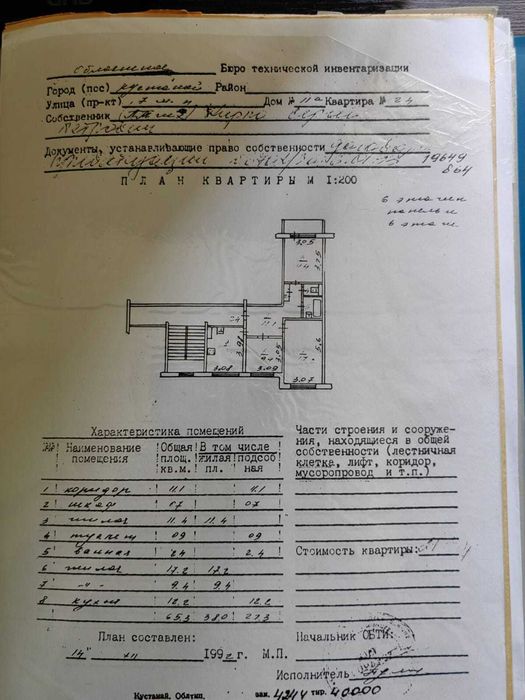 Областное Бюро технической инвентаризации
Город (пос) Кустанай Район
Улица (пр-кт) 7 м-н Дом № 11а Квартира № 24
Собственник
Петрович
Документы, устанавливающие право собственности
19649
864
ПЛАН КВАРТИРЫ М 1:200
6 этажн
панельн
6 этаж
3.05
3.75
3.98
3.08
3.05
3.09
5.6
3.07
Характеристика помещений
№ Наименование помещения Общая площ. кв.м. В том числе жилая пл. подсобная
1 коридор 11.1 11.1
2 шкаф 0.7 0.7
3 жилая 11.4 11.4
4 туалет 0.9 0.9
5 ванная 2.4 2.4
6 жилая 17.2 17.2
7 -"- 9.4 9.4
8 кухня 12.2 12.2
65.3 38.0 27.3
Части строения и сооруже-
ния, находящиеся в общей
собственности (лестничная
клетка, лифт, коридор,
мусоропровод и т.п.)
Стоимость квартиры:
План составлен:
Начальник ОБТИ:
"14" XII 1992 г. М.П.
Исполнитель
Кустанай. Облтип. зак. 4244 тир. 40000